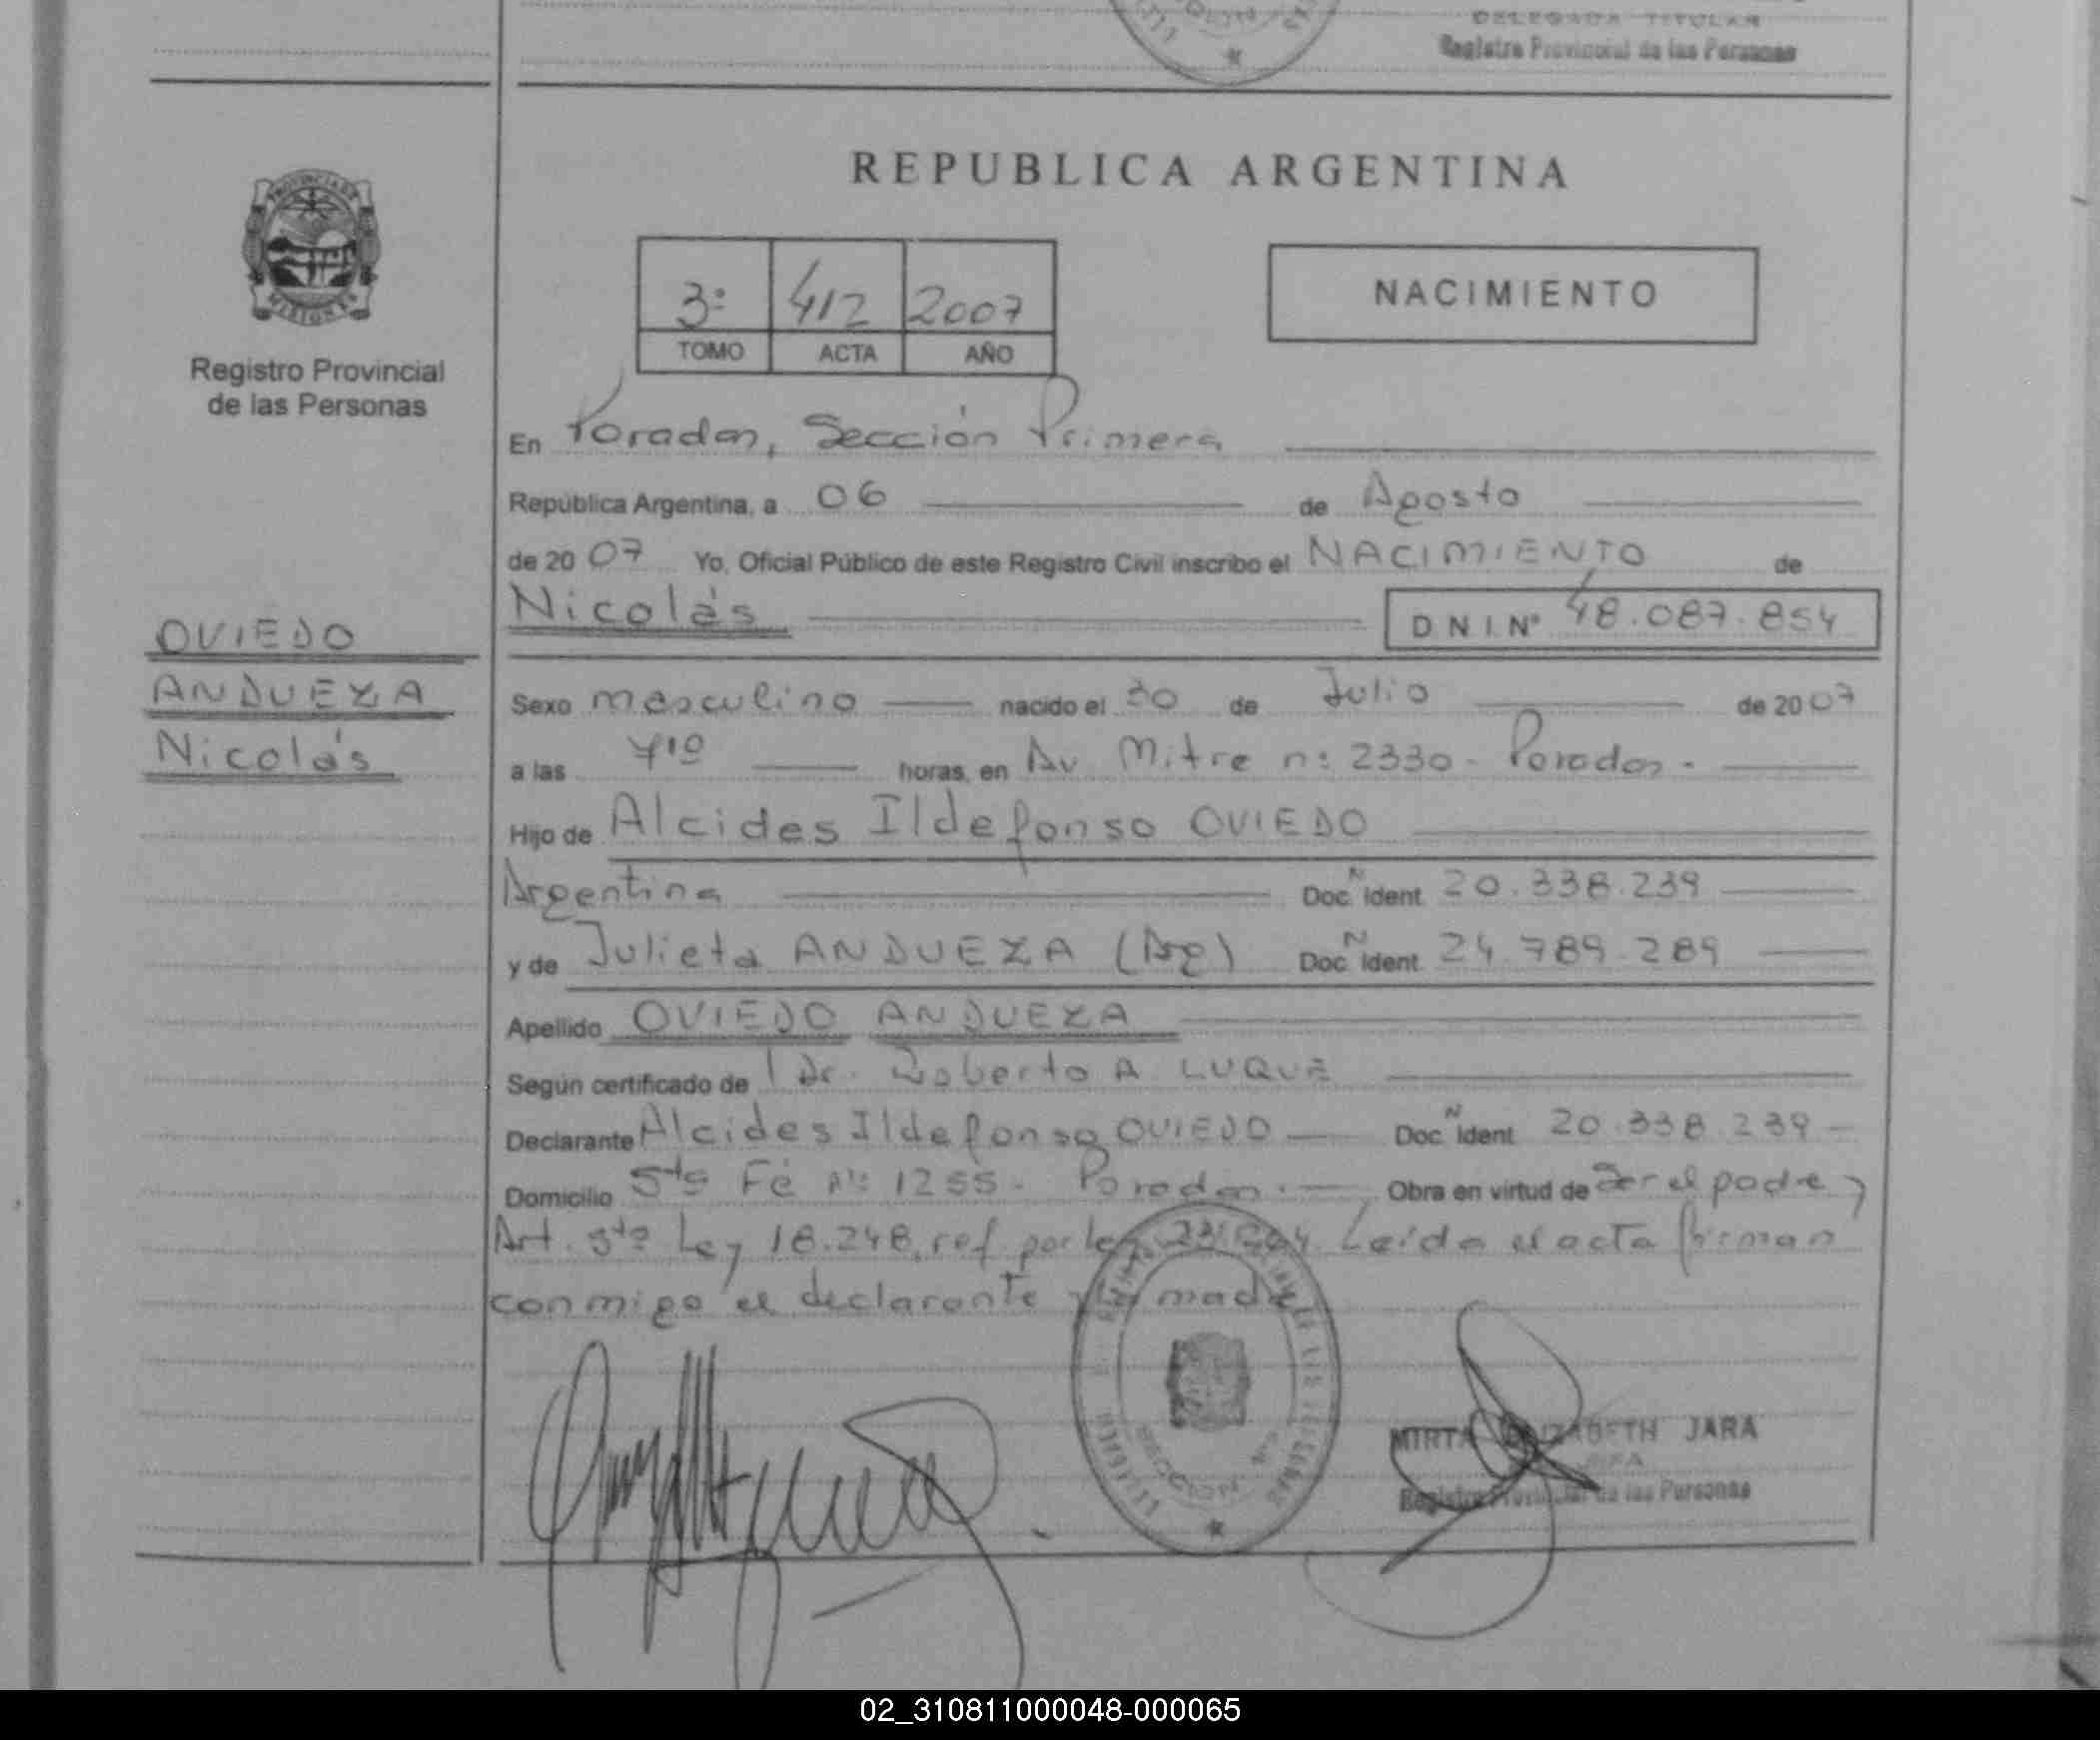 DELEGADA TITULAR
Registro Provincial de las Personas
PROVINCIA DE
MISIONES
Registro Provincial
de las Personas
REPUBLICA ARGENTINA
3º 412 2007
TOMO ACTA AÑO
NACIMIENTO
En Posadas, Sección Primera
República Argentina, a 06 de Agosto
de 2007 Yo, Oficial Público de este Registro Civil inscribo el NACIMIENTO de
Nicolás DNI Nº 48.087.854
OVIEDO
ANDUEZA
Nicolás
Sexo masculino nacido el 30 de Julio de 2007
a las horas, en Av. Mitre nº 2330 - Posadas -
Hijo de Alcides Ildefonso OVIEDO
Argentina Doc. Ident. Nº 20.338.239
y de Julieta ANDUEZA (Arg) Doc. Ident. Nº 24.789.289
Apellido OVIEDO ANDUEZA
Según certificado de Dr. Roberto A. LUQUE
Declarante Alcides Ildefonso OVIEDO Doc. Ident. Nº 20.338.239
Domicilio Sta Fé Nº 1255 - Posadas. Obra en virtud de ser el padre y
Art. 5to Ley 18.248, ref por ley Leída el acta firman
conmigo el declarante y la madre
MIRTA ELIZABETH JARA
JEFA
Registro Provincial de las Personas
02_310811000048-000065